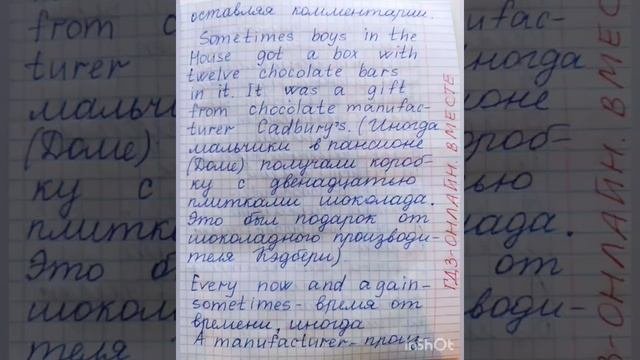 оставляя комментарии.
Sometimes boys in the
House got a box with
twelve chocolate bars
in it. It was a gift
from chocolate manufac-
turer Cadbury's. (Иногда
мальчики в пансионе
(Доме) получали короб-
ку с двенадцатью
плитками шоколада.
Это был подарок от
шоколадного производи-
теля Кэдбери)
Every now and again-
sometimes - время от
времени, иногда
A manufacturer - произ
ГДЗ-ОНЛАЙН. ВМЕСТЕ
InShOt